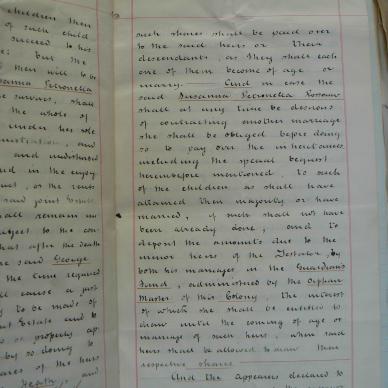 children then
of such child
succeed to his
but the
men will be
Susanna Petronella
survivor, shall
the whole of
under her sole
ministration, and
and undisturbed
and in the enjoy
or the rents
said joint Estate
shall remain un
subject to the con
that after the death
the said George
the time required
shall cause a just
to be made of
Estate and to
or properly ap
by so doing to
shares of the heirs
Health, and
such shares shall be paid over
to the said heirs or their
descendants, as they shall each
one of them become of age or
marry. And in case the
said Susanna Petronella Rossouw
shall at any time be desirous
of contracting another marriage
she shall be obliged before doing
so to pay over the inheritances
including the special bequest
hereinbefore mentioned, to such
of the children as shall have
attained their majority or have
married, if such shall not have
been already done, and to
deposit the amounts due to the
minor heirs of the Testator, by
both his marriages, in the Guardian's
Fund, administered by the Orphan
Master of this Colony, the interest
of which she shall be entitled to
draw until the coming of age or
marriage of such heirs, when said
heirs shall be allowed to draw their
respective shares.
And the appearers declared to